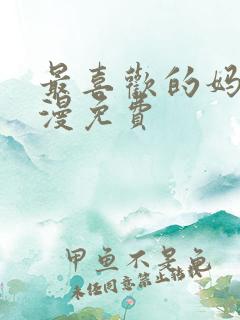 最喜歡的妈
漫免費
甲鱼不是龟
未经同意禁止转载